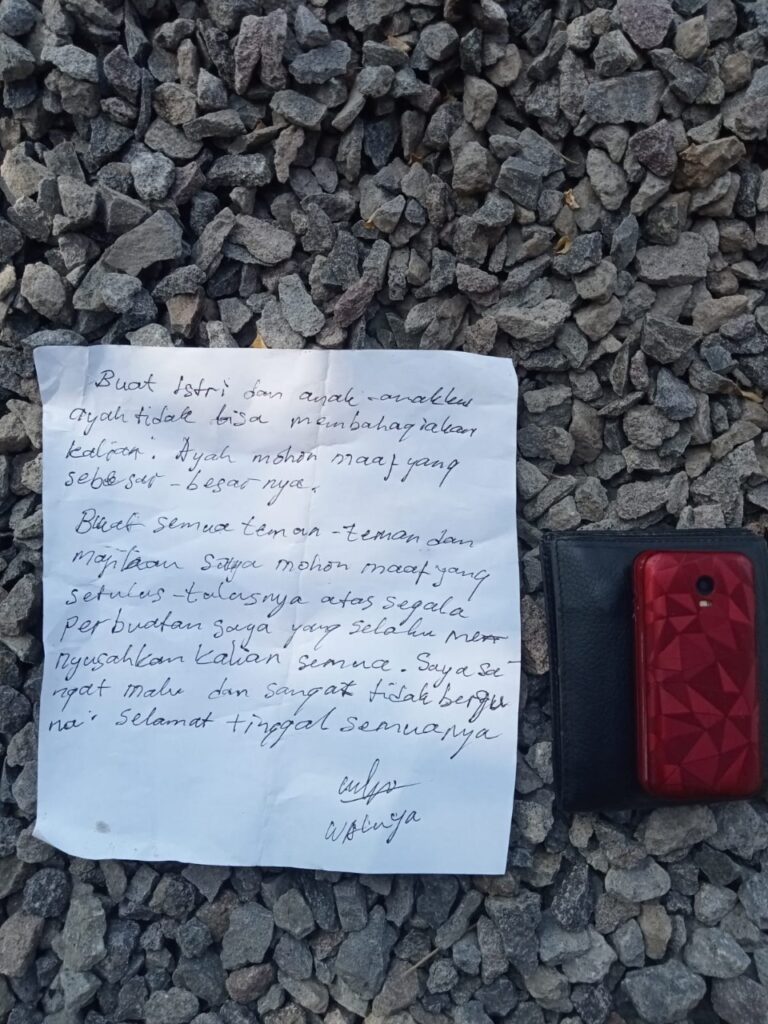 Buat Istri dan anak-anakku
ayah tidak bisa membahagiakan
kalian. Ayah mohon maaf yang
sebesar-besarnya.
Buat semua teman-teman dan
saya mohon maaf yang
setulus-tulusnya atas segala
perbuatan saya yang selalu me
nyusahkan kalian semua. Saya sa-
ngat malu dan sangat tidak bergu
na. Selamat tinggal semuanya